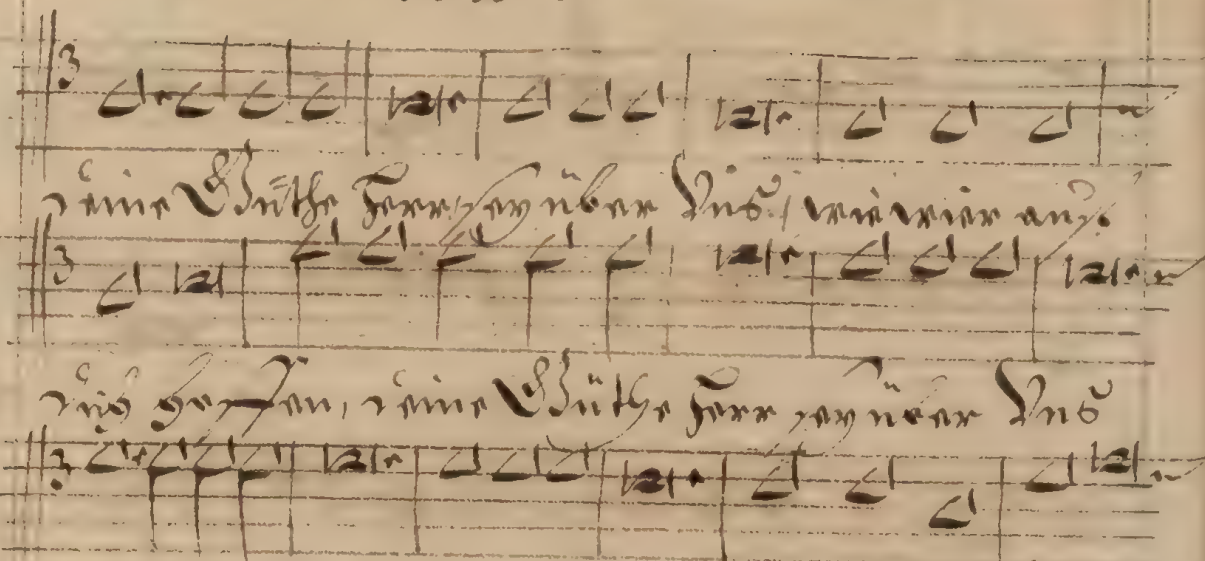 3
deine Güthe Herr sey über Vns, wie wier auf
3
dich hoffen, deine Güthe Herr sey über Vns
3